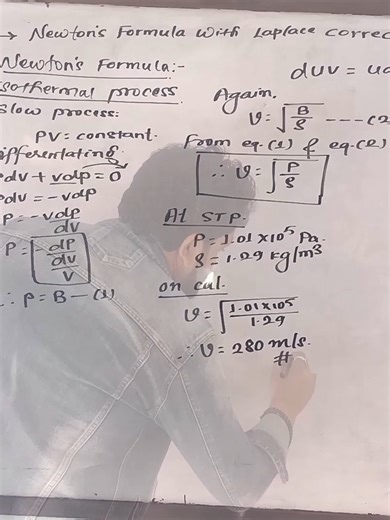 → Newton's Formula with Laplace correc
Newton's Formula:-
sothermal process
Slow process:
PV = constant.
ifferentiating
Pdv + vdp = 0
Pdv = -vdp
P = -vdp/dv
P = dP/dv/v
∴ P = B - (1)
duv = ud
Again,
v = √B/ρ ---- (2
From eq.(1) & eq.(2)
∴ v = √P/ρ
At STP.
P = 1.01 × 10⁵ Pa.
ρ = 1.29 kg/m³
on cal.
v = √1.01×10⁵/1.29
∴ v = 280 m/s.
#